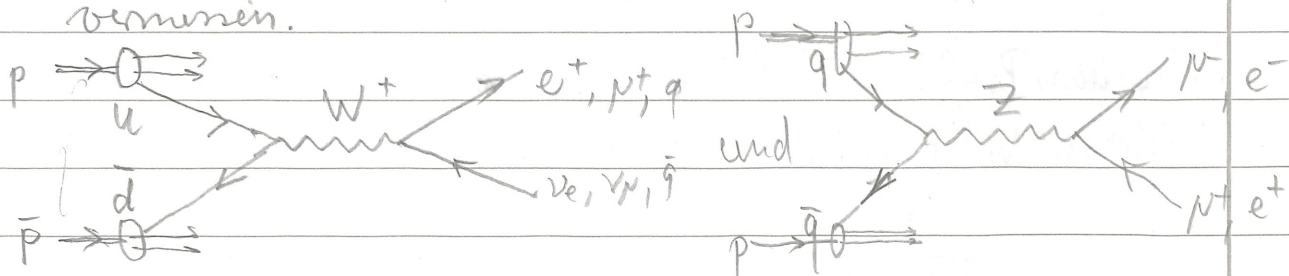 vermessen.
p u W⁺ e⁺, μ⁺, q
p̄ d̄ νe, νμ, q̄
und
p q Z μ⁻ e⁻
p q̄ μ⁺ e⁺